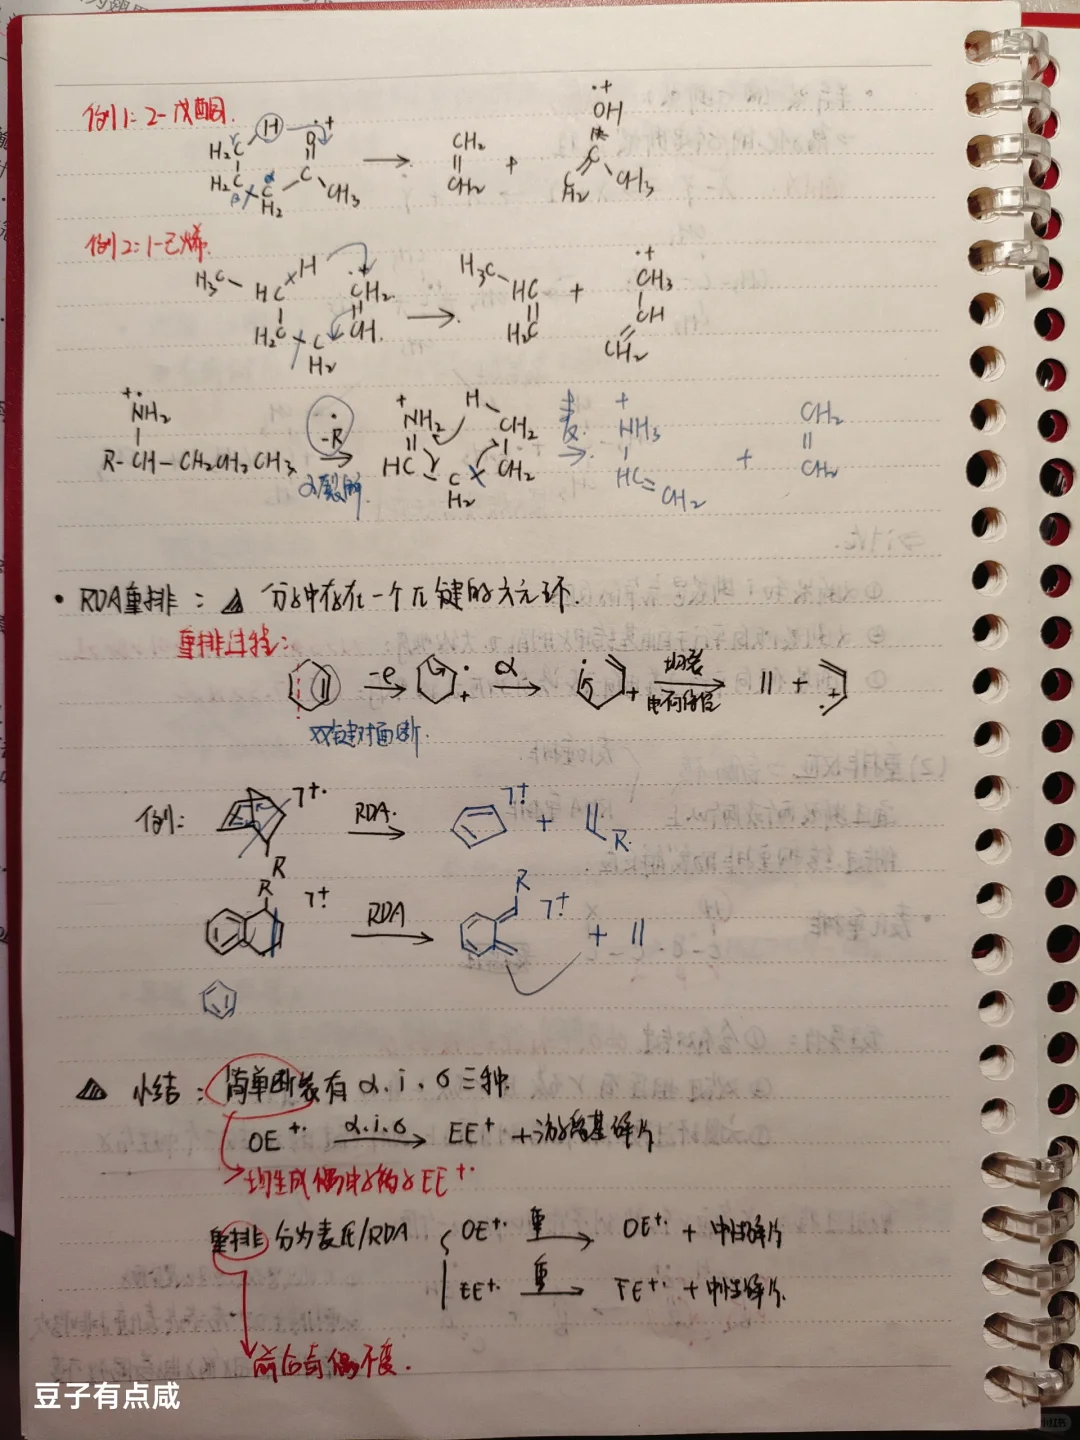 例1: 2-戊酮.
H₂C H O CH₃
H₂C C H₂ C
→
CH₂
CH₂ +
OH
C CH₂ CH₃
例2: 1-己烯.
H₃C- HC H CH₂
H₂C C H₂ CH.
→
H₃C HC
H₂C +
CH₃
CH
CH₂
NH₂
R-CH-CH₂CH₂CH₃
-R
α裂解.
→
NH₂ H CH₂
HC C H₂ CH₂
麦
→
NH₃
HC=CH₂
+
CH₂
CH₂
• RDA重排: △ 分子中存在一个π键的六元环.
重排过程:
-e → α → 均裂 +
电荷保留
双键对面断.
例: R ⌉+· RDA. → ⌉+· + R
R ⌉+· RDA → R ⌉+· + ||
△ 小结: 简单断裂有 α. i. σ 三种.
OE+· α.i.σ → EE+ + 游离基碎片
均生成偶电子的 EE+.
重排 分为麦氏/RDA OE+· 重 → OE+· + 中性碎片
EE+· 重 → EE+· + 中性碎片.
前后奇偶不变.
豆子有点咸